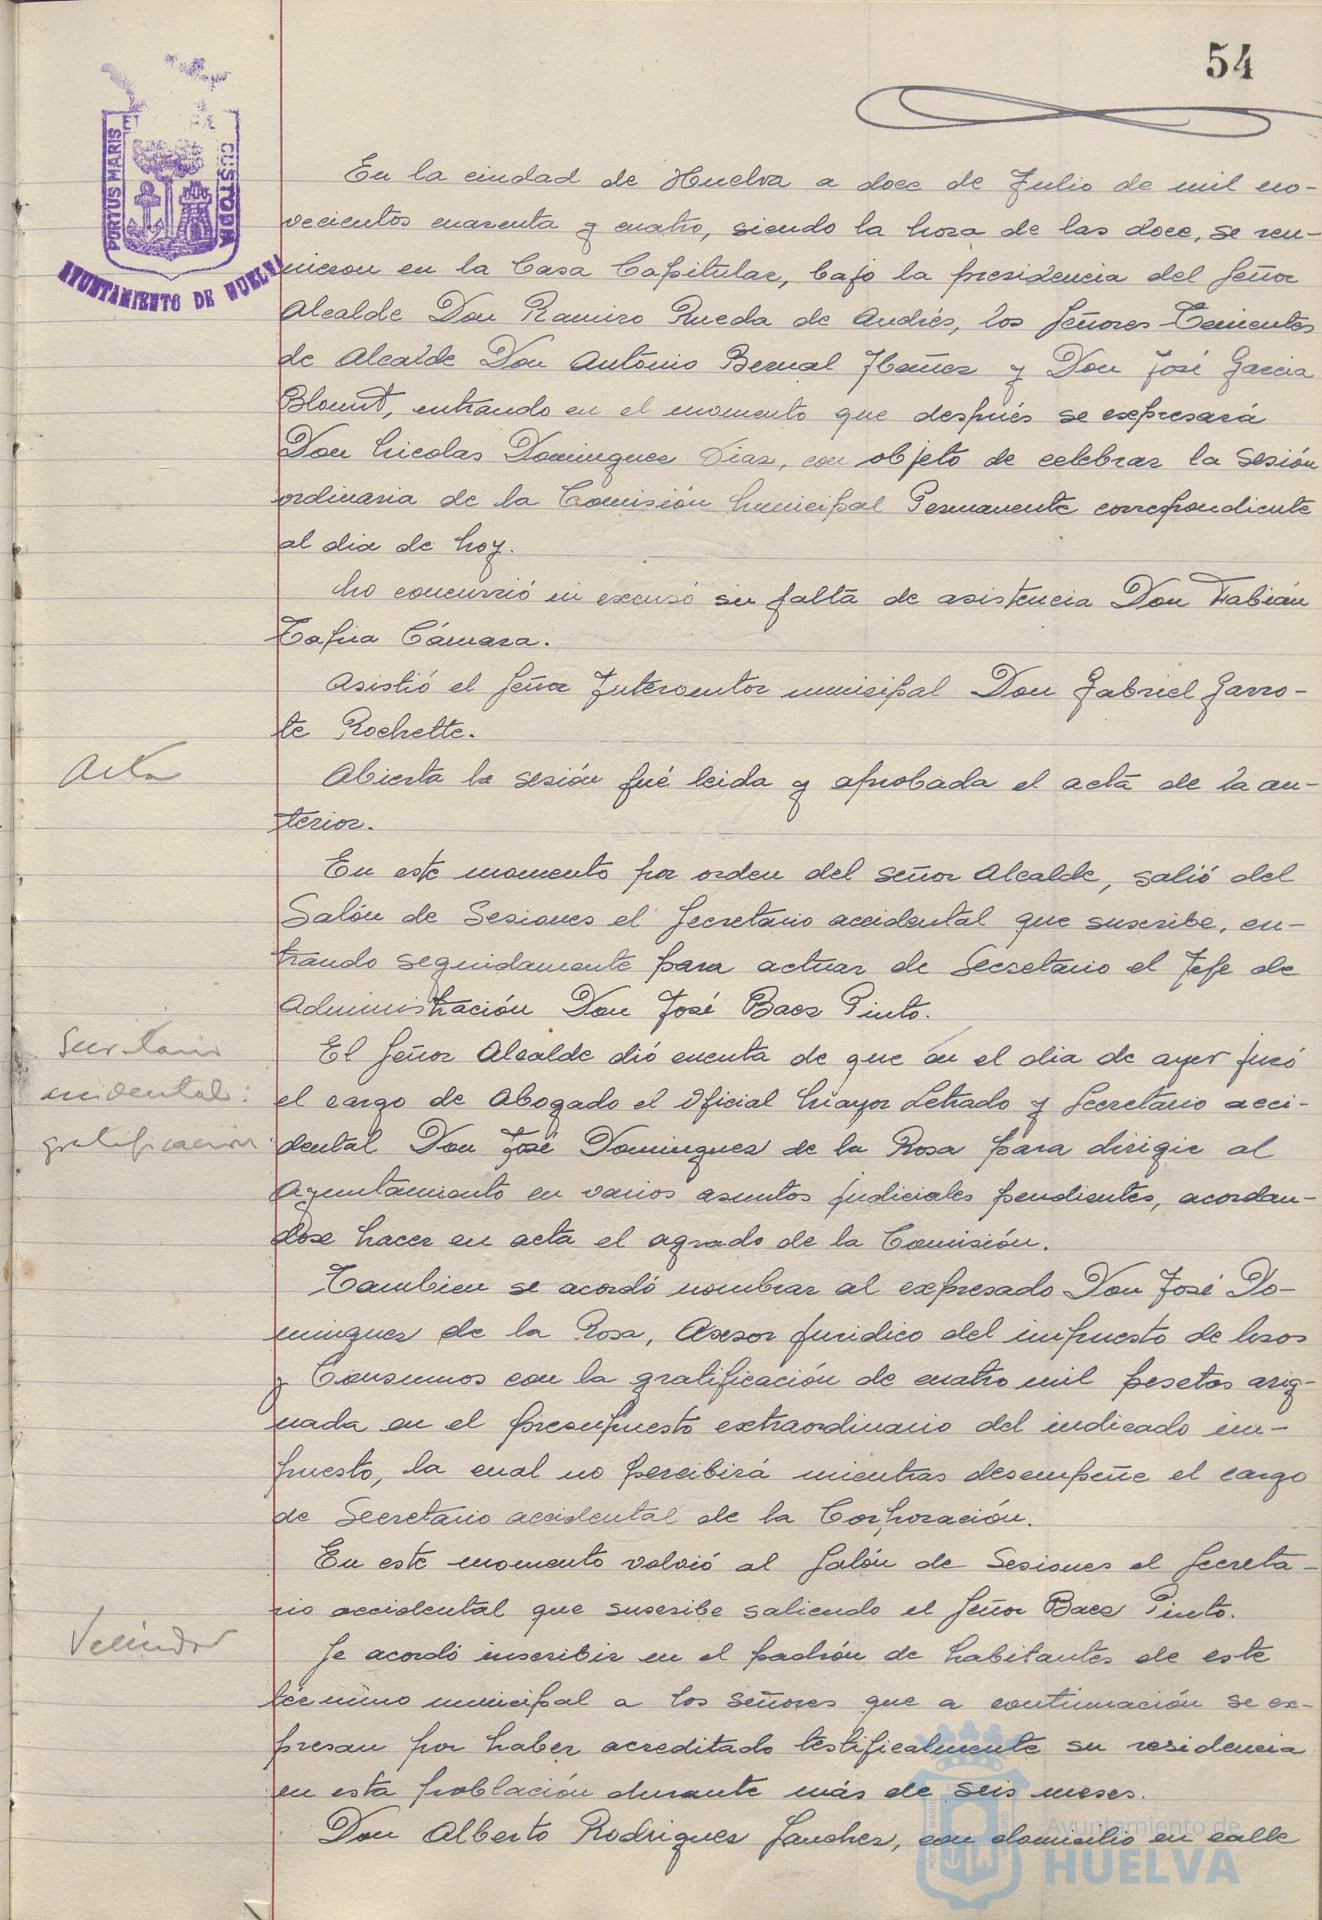 54
PORTUS MARIS ET CUSTODIA
AYUNTAMIENTO DE HUELVA
En la ciudad de Huelva a doce de Julio de mil no-
vecientos cuarenta y cuatro, siendo la hora de las doce, se reu-
nieron en la Casa Capitular, bajo la presidencia del Señor
Alcalde Don Ramiro Rueda de Andrés, los Señores Tenientes
de Alcalde Don Antonio Bernal Ibañez y Don José Garcia
Blount, entrando en el momento que después se expresará
Don Nicolas Dominguez Diaz, con objeto de celebrar la sesión
ordinaria de la Comisión Municipal Permanente correspondiente
al dia de hoy.
No concurrió ni excusó su falta de asistencia Don Fabián
Tapia Cámara.
Asistió el Señor Interventor municipal Don Gabriel Garro-
te Rochette.
Acta
Abierta la sesión fué leida y aprobada el acta de la an-
terior.
En este momento por orden del señor Alcalde, salió del
Salón de Sesiones el Secretario accidental que suscribe, en-
trando seguidamente para actuar de Secretario el Jefe de
Administración Don José Baez Pinto.
Secretario
accidental:
gratificación
El Señor Alcalde dió cuenta de que en el dia de ayer juró
el cargo de Abogado el Oficial Mayor Letrado y Secretario acci-
dental Don José Dominguez de la Rosa para dirigir al
Ayuntamiento en varios asuntos judiciales pendientes, acordan-
dose hacer en acta el agrado de la Comisión.
Tambien se acordó nombrar al expresado Don José Do-
minguez de la Rosa, Asesor Juridico del impuesto de Usos
y Consumos con la gratificación de cuatro mil pesetas asig-
nada en el presupuesto extraordinario del indicado im-
puesto, la cual no percibirá mientras desempeñe el cargo
de Secretario accidental de la Corporación.
En este momento volvió al Salón de Sesiones el Secreta-
rio accidental que suscribe saliendo el Señor Baez Pinto.
Vecindad
Se acordó inscribir en el padrón de habitantes de este
término municipal a los señores que a continuación se ex-
presan por haber acreditado testificalmente su residencia
en esta población durante más de seis meses.
Don Alberto Rodriguez Sanchez, con domicilio en calle
Ayuntamiento de
HUELVA